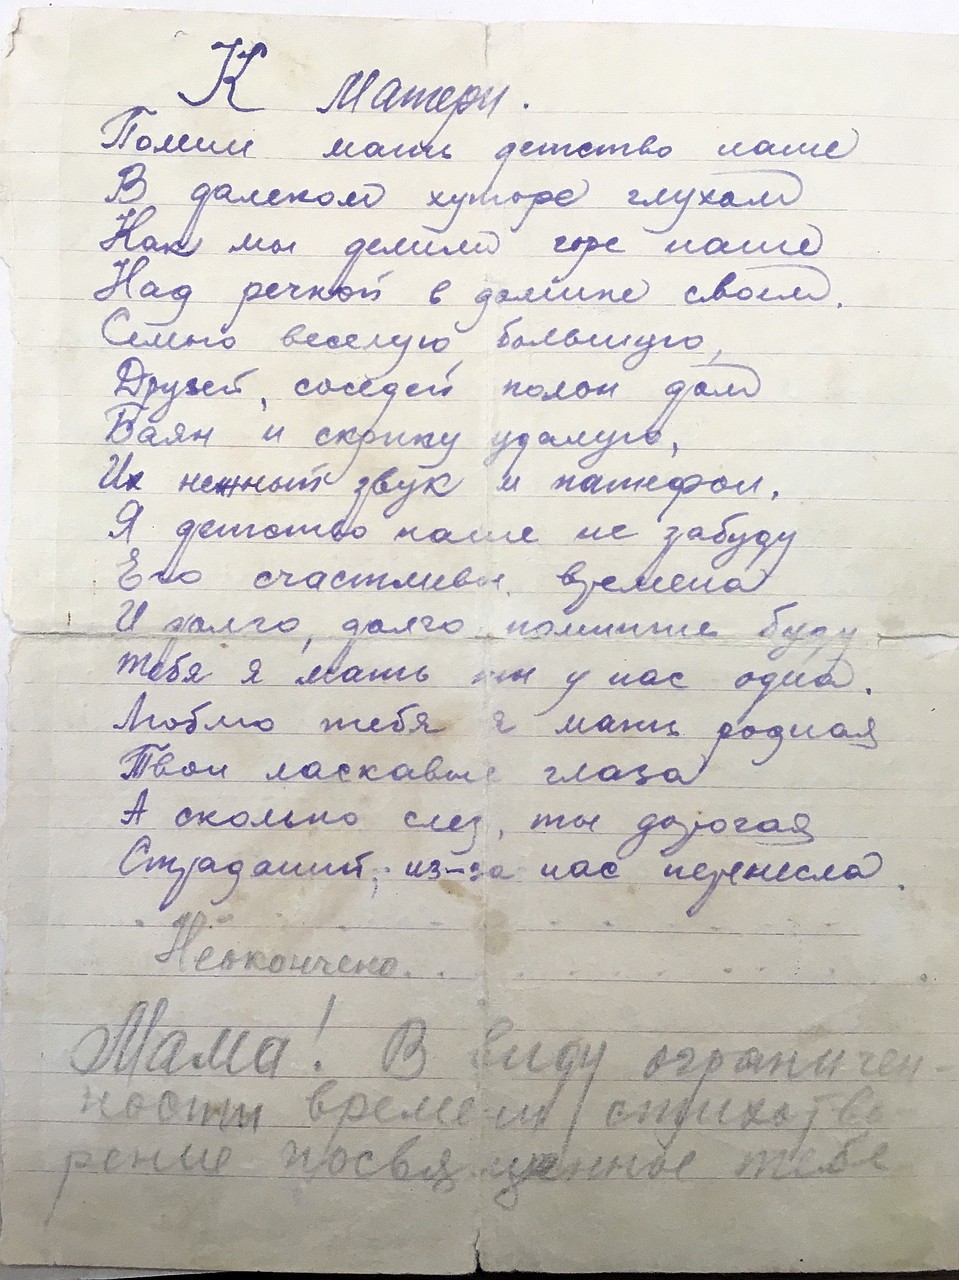 К Матери.
Помни мать детство наше
В далеком хуторе глухом
Как мы делили горе наше
Над речкой в домике своем.
Семью веселую большую,
Друзей, соседей полон дом
Баян и скрипку удалую,
Их нежный звук и патефон.
Я детство наше не забуду
Его счастливые времена
И долго, долго помнить буду
Тебя я мать ты у нас одна.
Люблю тебя я мать родная
Твои ласкавые глаза
А сколько слез, ты дорогая
Страданий, из-за нас перенесла.
Неокончено...
Мама! В виду ограничен-
ности времени стихотво
рение посвященное тебе